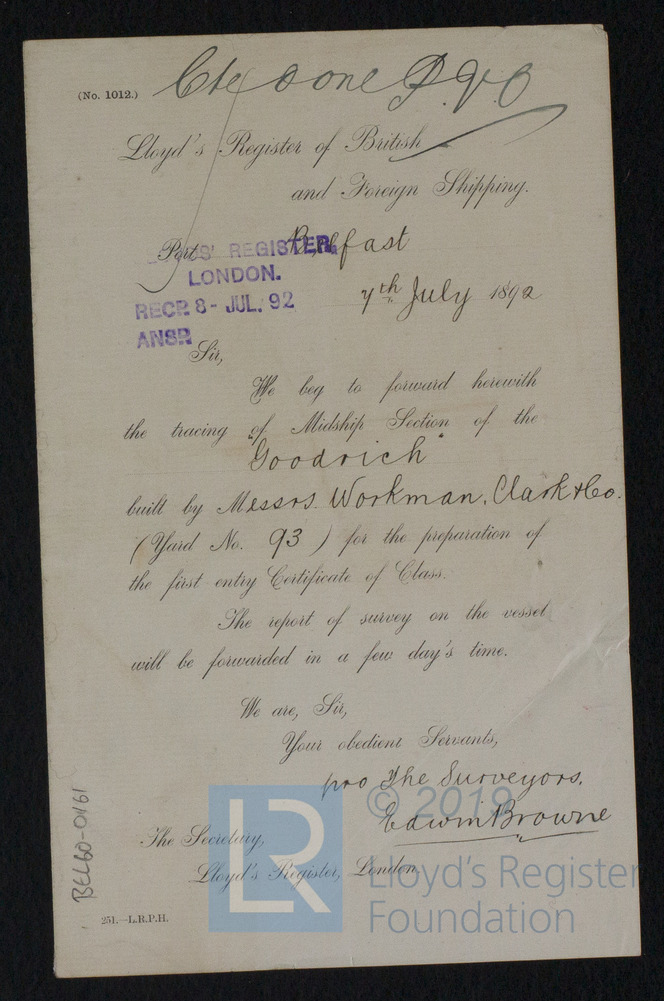 (No. 1012.)
Lloyd's Register of British
and Foreign Shipping.
Port Belfast
LLOYDS' REGISTER,
LONDON.
RECD 8 - JUL. 92
ANSD
7th July 1892
Sir,
We beg to forward herewith
the tracing of Midship Section of the
"Goodrich"
built by Messrs. Workman, Clark & Co.
(Yard No. 93) for the preparation of
the first entry Certificate of Class.
The report of survey on the vessel
will be forwarded in a few day's time.
We are, Sir,
Your obedient Servants,
pro The Surveyors.
Edwin Browne
The Secretary,
Lloyd's Register, London.
251.—L.R.P.H.
BEL60-0161
LR
© 2019
Lloyd's Register
Foundation